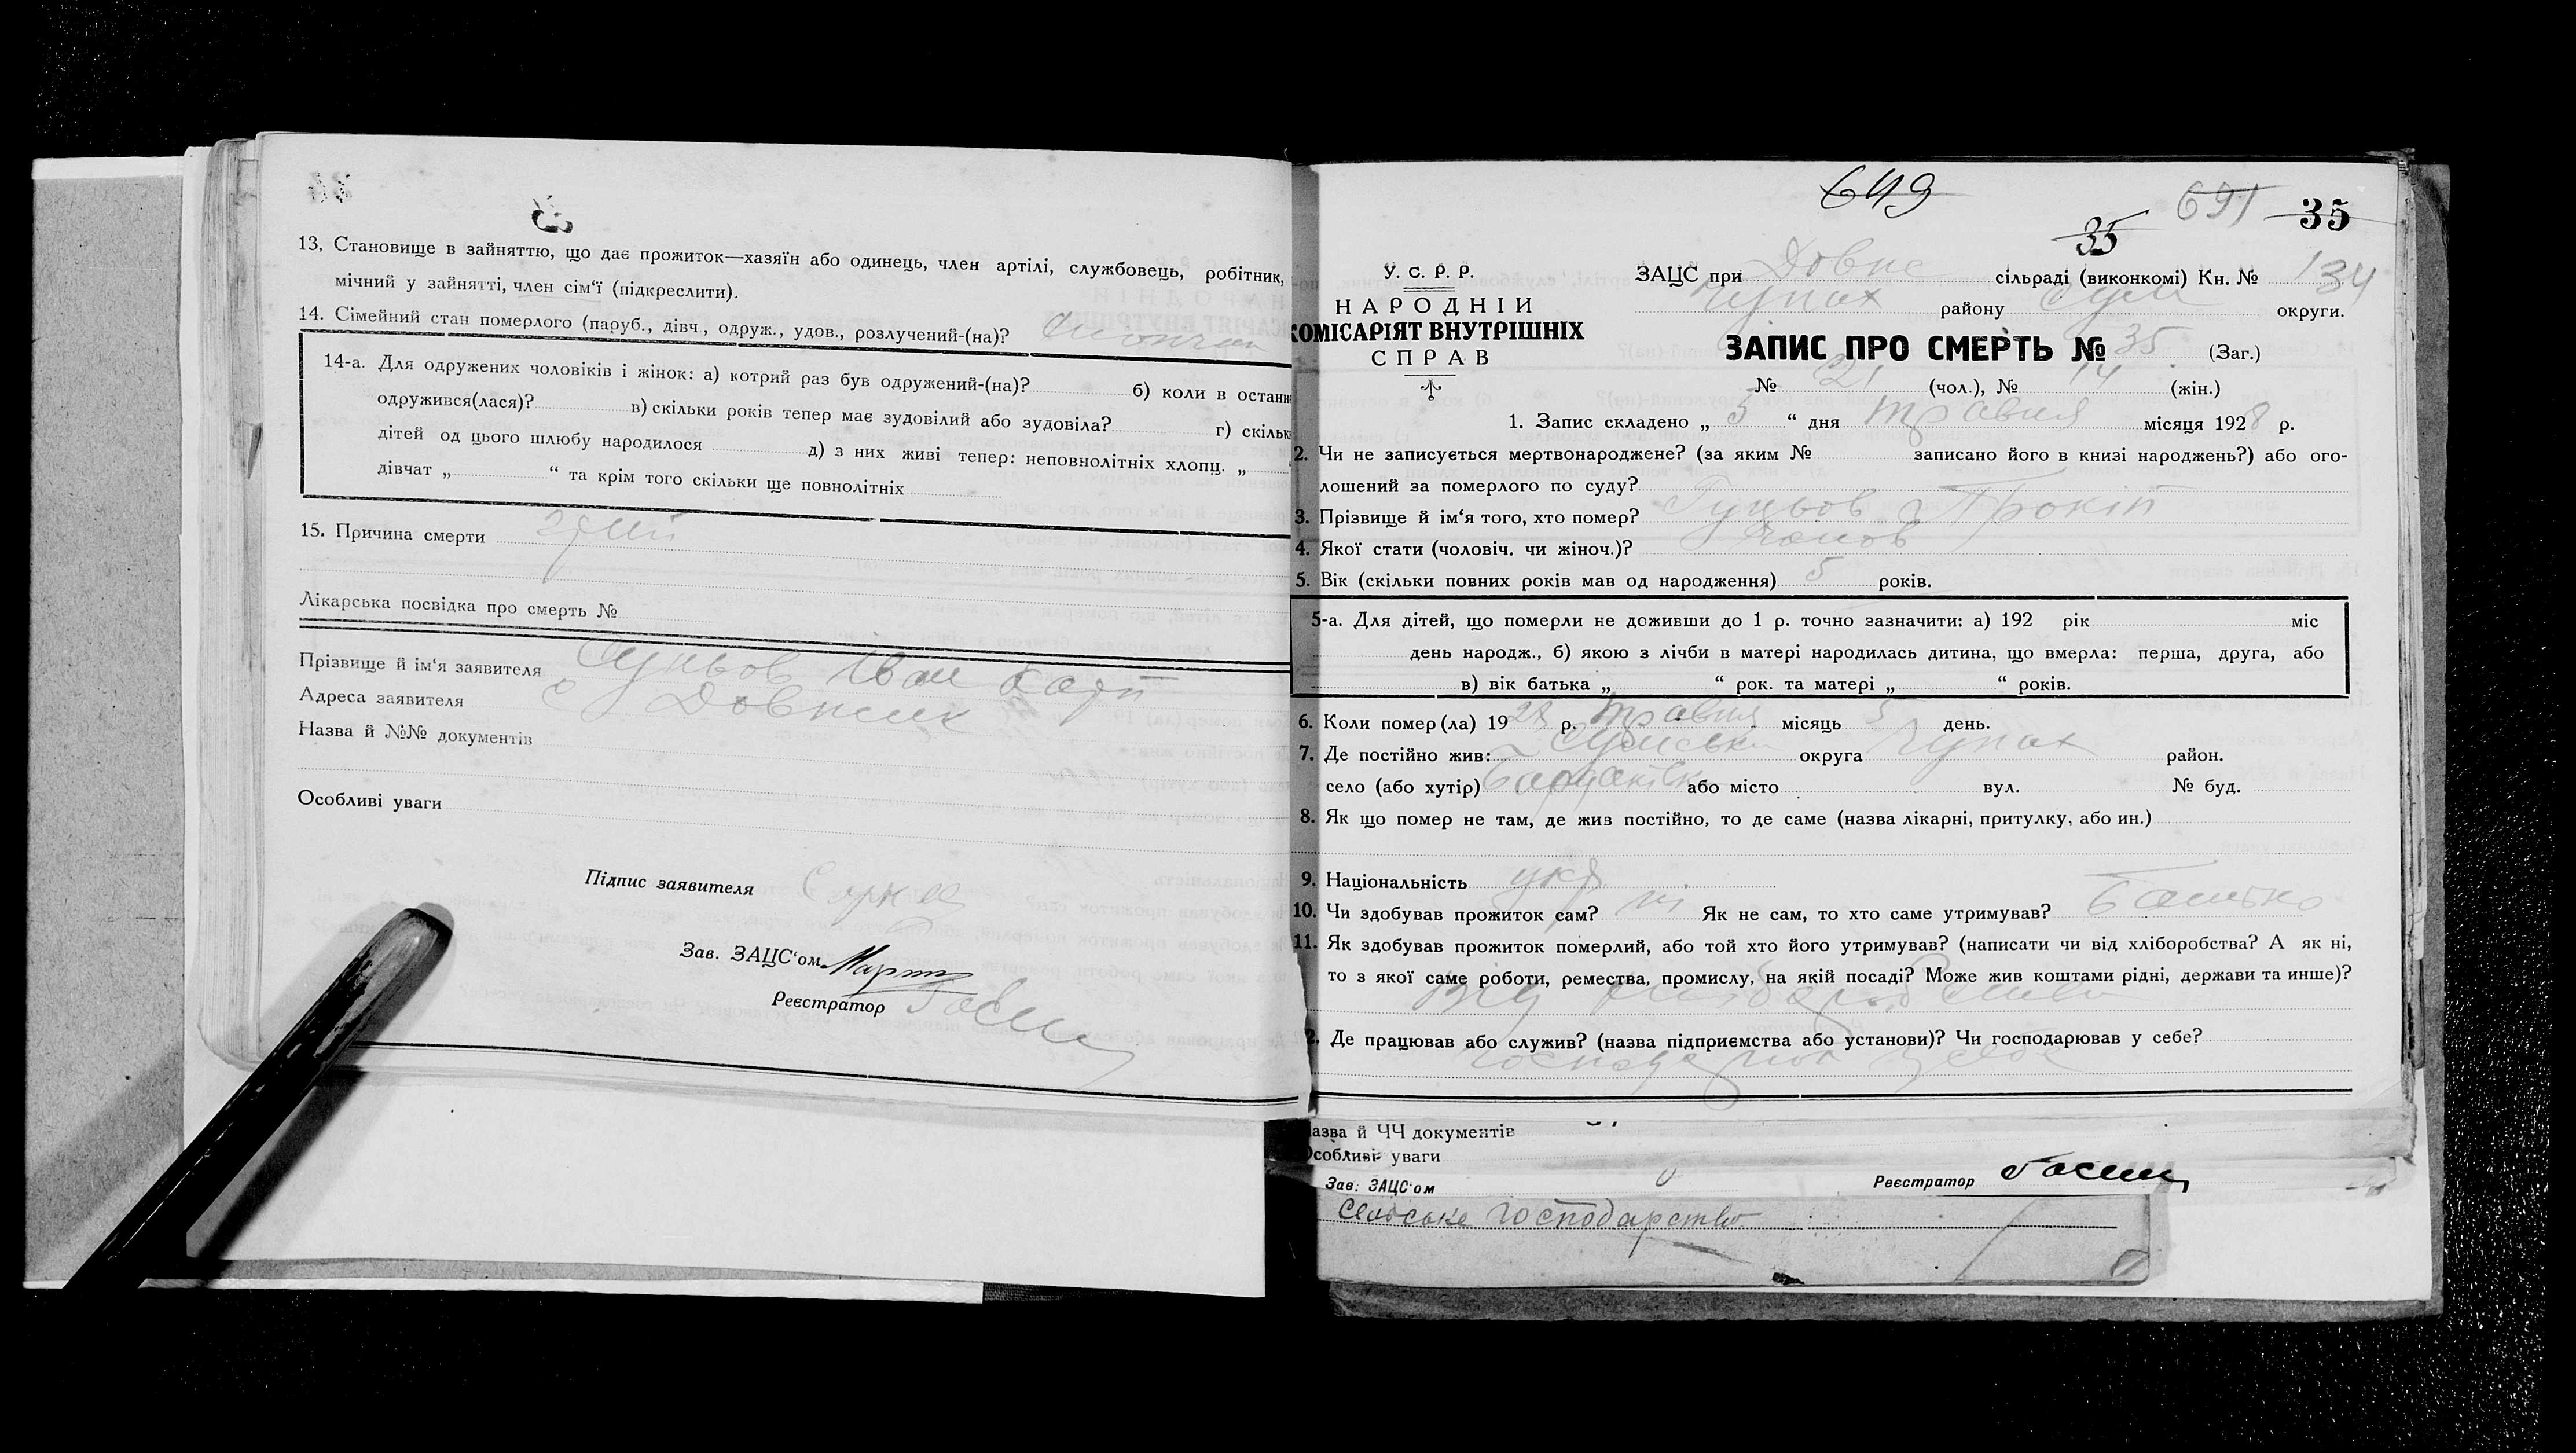 13, Становище в зайняттю, що дає прожиток—хазяїн або одинець, член артілі, службовець, робітник,
мічний у зайнятті, член сім'ї (підкреслити).
14. Сімейний стан померлого (паруб., дівч., одруж., удов., розлучений-(на)?
14-а. Для одружених чоловіків і жінок: а) котрий раз був одружений-(на)? б) коли в останн
одружився(лася)? в) скільки років тепер має зудовілий або зудовіла? г) скільк
дітей од цього шлюбу народилося д) з них живі тепер: неповнолітніх хлопц. „
дівчат „ “ та крім того скільки ще повнолітніх
15. Причина смерти
Лікарська посвідка про смерть №
Прізвище й ім'я заявителя Гуньов Іван Карп
Адреса заявителя с Довжик
Назва й №№ документів
Особливі уваги
Підпис заявителя
Зав. ЗАЦС'ом
Реєстратор
649
691 35
35
У. С. Р. Р.
НАРОДНІИ
КОМІСАРІЯТ ВНУТРІШНІХ
СПРАВ
ЗАЦС при Довже сільраді (виконкомі) Кн. № 134
Чупах району Сум округи.
ЗАПИС ПРО СМЕРТЬ № 35 (Заг.)
№ 21 (чол.), № 14 (жін.)
1. Запис складено „ 5 “ дня травня місяця 1928 р.
2. Чи не записується мертвонароджене? (за яким № записано його в книзі народжень?) або ого-
лошений за померлого по суду?
3. Прізвище й ім'я того, хто помер? Гуньов Прокіп
4. Якої стати (чоловіч. чи жіноч.)? чолов
5. Вік (скільки повних років мав од народження) 5 років.
5-а. Для дітей, що померли не доживши до 1 р. точно зазначити: а) 192 рік міс
день народж., б) якою з лічби в матері народилась дитина, що вмерла: перша, друга, або
в) вік батька „ “ рок. та матері „ “ років.
6. Коли помер(ла) 1928 р. травня місяць 5 день.
7. Де постійно жив: Сумська округа Чупах район.
село (або хутір) або місто вул. № буд.
8. Як що помер не там, де жив постійно, то де саме (назва лікарні, притулку, або ин.)
9. Національність укр
10. Чи здобував прожиток сам? ні Як не сам, то хто саме утримував? Батько
11. Як здобував прожиток померлий, або той хто його утримував? (написати чи від хліборобства? А як ні,
то з якої саме роботи, ремества, промислу, на якій посаді? Може жив коштами рідні, держави та инше)?
від хліборобства
2. Де працював або служив? (назва підприємства або установи)? Чи господарював у себе?
господарює у себе
азва й ЧЧ документів
Особливі уваги
Зав. ЗАЦС'ом Реєстратор
Сельське господарство